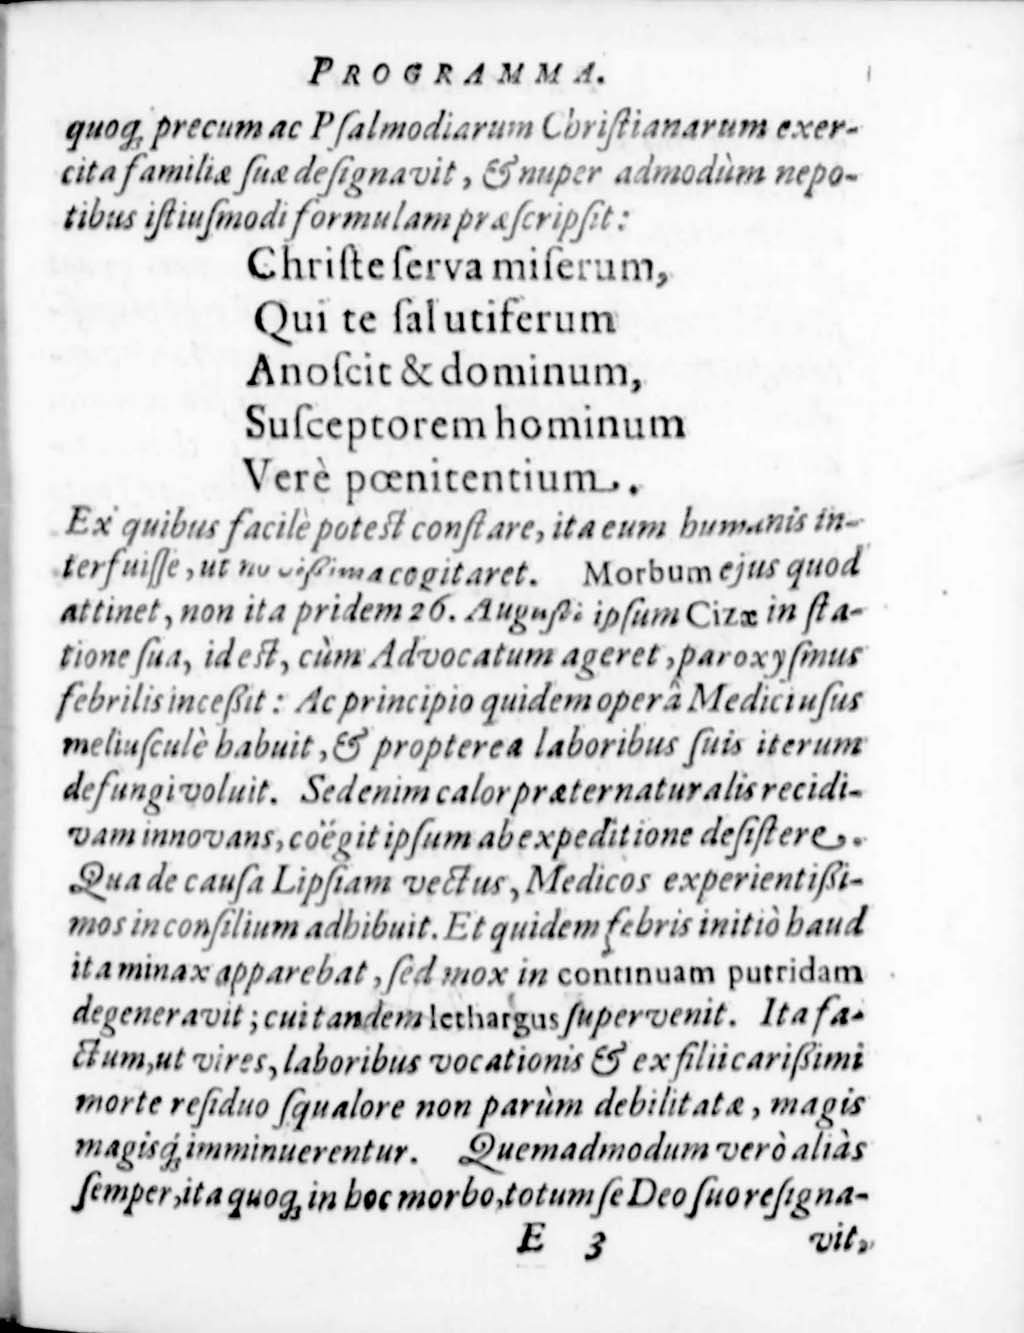 PROGRAMMA.
quoq́ꝫ precum ac Pſalmodiarum Chriſtianarum exer-
cita familiæ ſuæ deſignavit, & nuper admodùm nepo-
tibus iſtiuſmodi formulam præſcripſit:
Chriſte ſerva miſerum,
Qui te ſalutiferum
Anoſcit & dominum,
Suſceptorem hominum
Verè pœnitentium.
Ex quibus facilè poteſt conſtare, ita eum humanis in-
terfuiſſe, ut noviſſima cogitaret. Morbum ejus quod
attinet, non ita pridem 26. Auguſti ipſum Cizæ in ſta-
tione ſua, id eſt, cùm Advocatum ageret, paroxyſmus
febrilis inceßit: Ac principio quidem operâ Medici uſus
meliuſculè habuit, & propterea laboribus ſuis iterum
defungi voluit. Sed enim calor præternaturalis recidi-
vam innovans, coëgit ipſum ab expeditione deſiſtere.
Qua de cauſa Lipſiam vectus, Medicos experientißi-
mos in conſilium adhibuit. Et quidem febris initiò haud
ita minax apparebat, ſed mox in continuam putridam
degeneravit; cui tandem lethargus ſupervenit. Ita fa-
ctum, ut vires, laboribus vocationis & ex filii carißimi
morte reſiduo ſqualore non parùm debilitatæ, magis
magisq́ꝫ imminuerentur. Quemadmodum verò aliàs
ſemper, ita quoqꝫ in hoc morbo, totum ſe Deo ſuo reſigna-
E 3 vit,